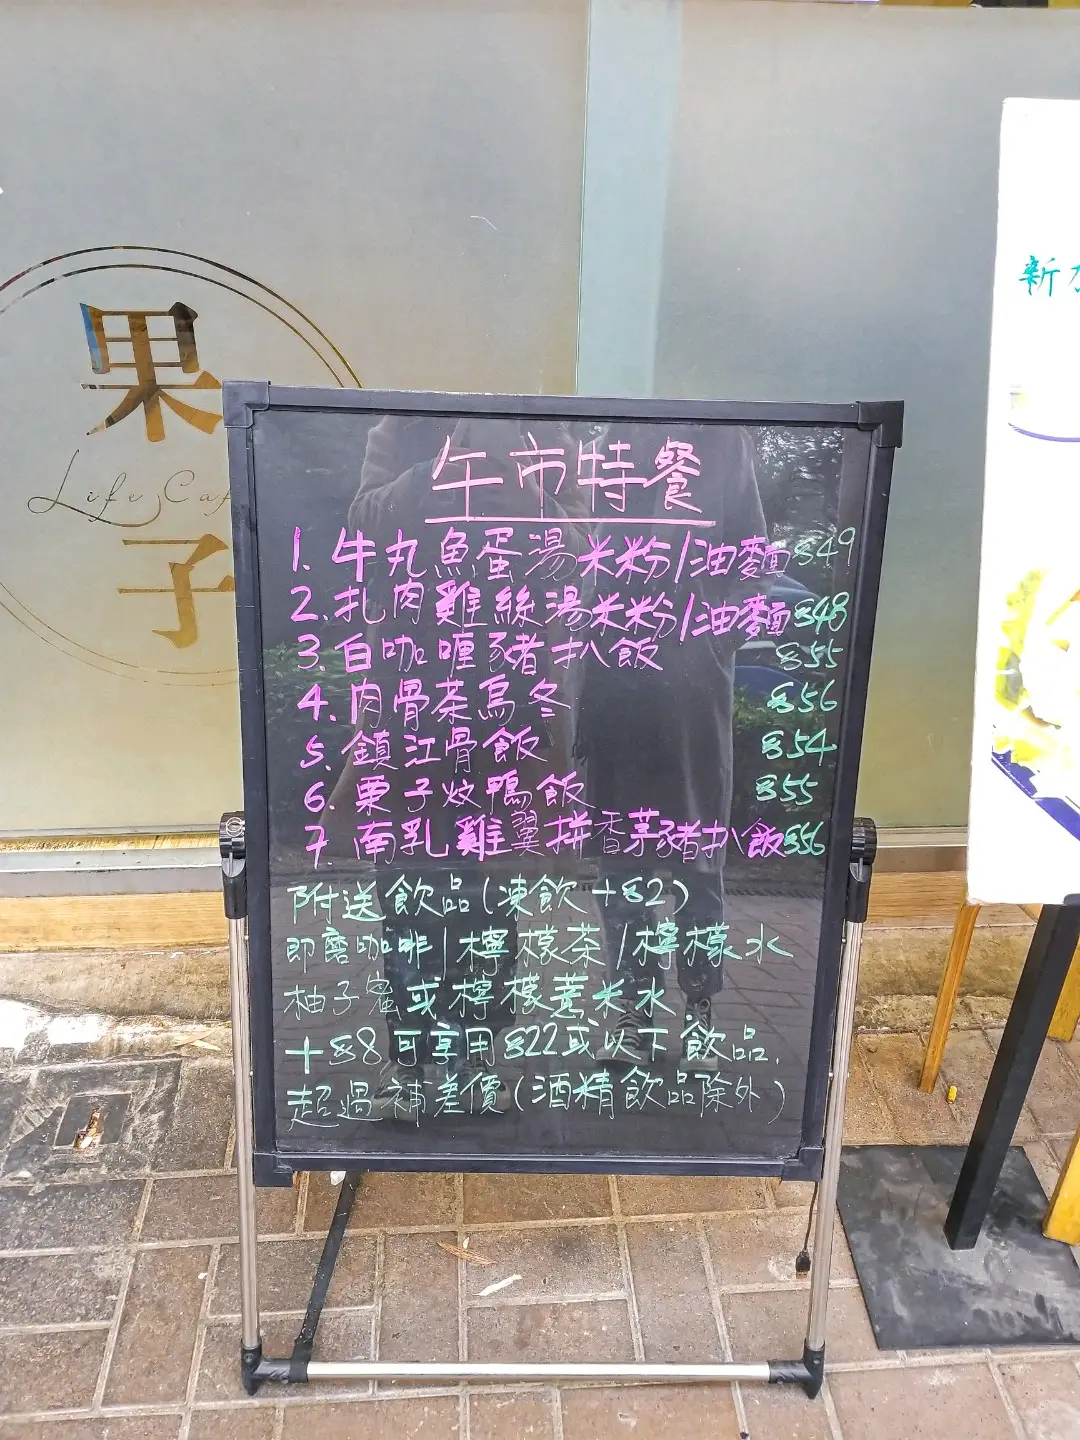 果
Life Caf
子
午市特餐
1. 牛丸魚蛋湯米粉/油麵 $49
2. 扎肉雞絲湯米粉/油麵 $48
3. 白咖喱豬扒飯 $55
4. 肉骨茶烏冬 $56
5. 鎮江骨飯 $54
6. 栗子炆鴨飯 $55
7. 南乳雞翼拼香茅豬扒飯 $56
附送飲品(凍飲+$2)
即磨咖啡/檸檬茶/檸檬水
柚子蜜或檸檬薏米水
+$8可享用$22或以下飲品,
超過補差價(酒精飲品除外)
新